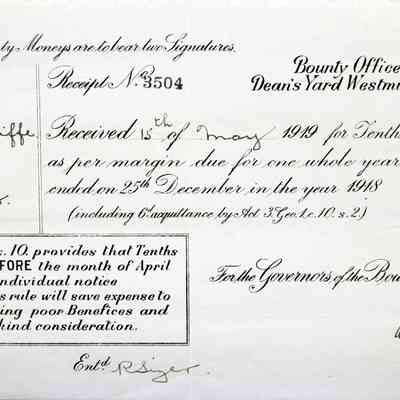 ty Moneys are to bear two Signatures.
Receipt No. 3504
Bounty Office
Dean's Yard Westmi
iffe
Received 15th of May 1919 for Tenths
as per margin due for one whole year
ended on 25th December, in the year 1918
(including 6d. acquittance by Act 3. Geo. 1. c. 10. s. 2.)
. 10. provides that Tenths
FORE the month of April
ndividual notice
s rule will save expense to
ing poor Benefices and
kind consideration.
For the Governors of the Bou
Entd. R Sizer